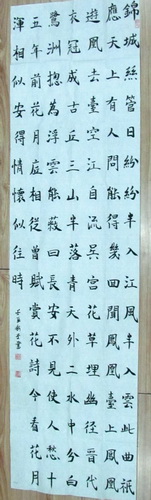 錦城絲管日紛紛半入江風半入雲此曲祇
應天上有人間能得幾回聞鳳凰臺上鳳凰
遊鳳去臺空江自流吳宮花草埋幽徑晉代
衣冠成古丘三山半落青天外二水中分白
鷺洲總為浮雲能蔽日長安不見使人愁十
五年前花月底相從曾賦賞花詩今看花月
渾相似安得情懷似往時